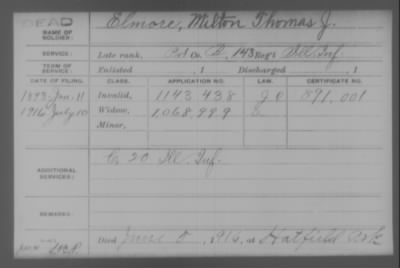 DEAD
NAME OF SOLDIER: Elmore, Milton Thomas J.
SERVICE: Late rank, Pvt Co. D, 143 Reg't Ill. Inf.
TERM OF SERVICE: Enlisted , 1 Discharged , 1
DATE OF FILING. CLASS. APPLICATION NO. LAW. CERTIFICATE NO.
1893-Jan. 11 Invalid, 1143 438 20 891,001
1916 July 10 Widow, 1,068,999
Minor,
ADDITIONAL SERVICES: C 20 Ill. Inf.
REMARKS:
Died June 5, 1916, at Hatfield Ark